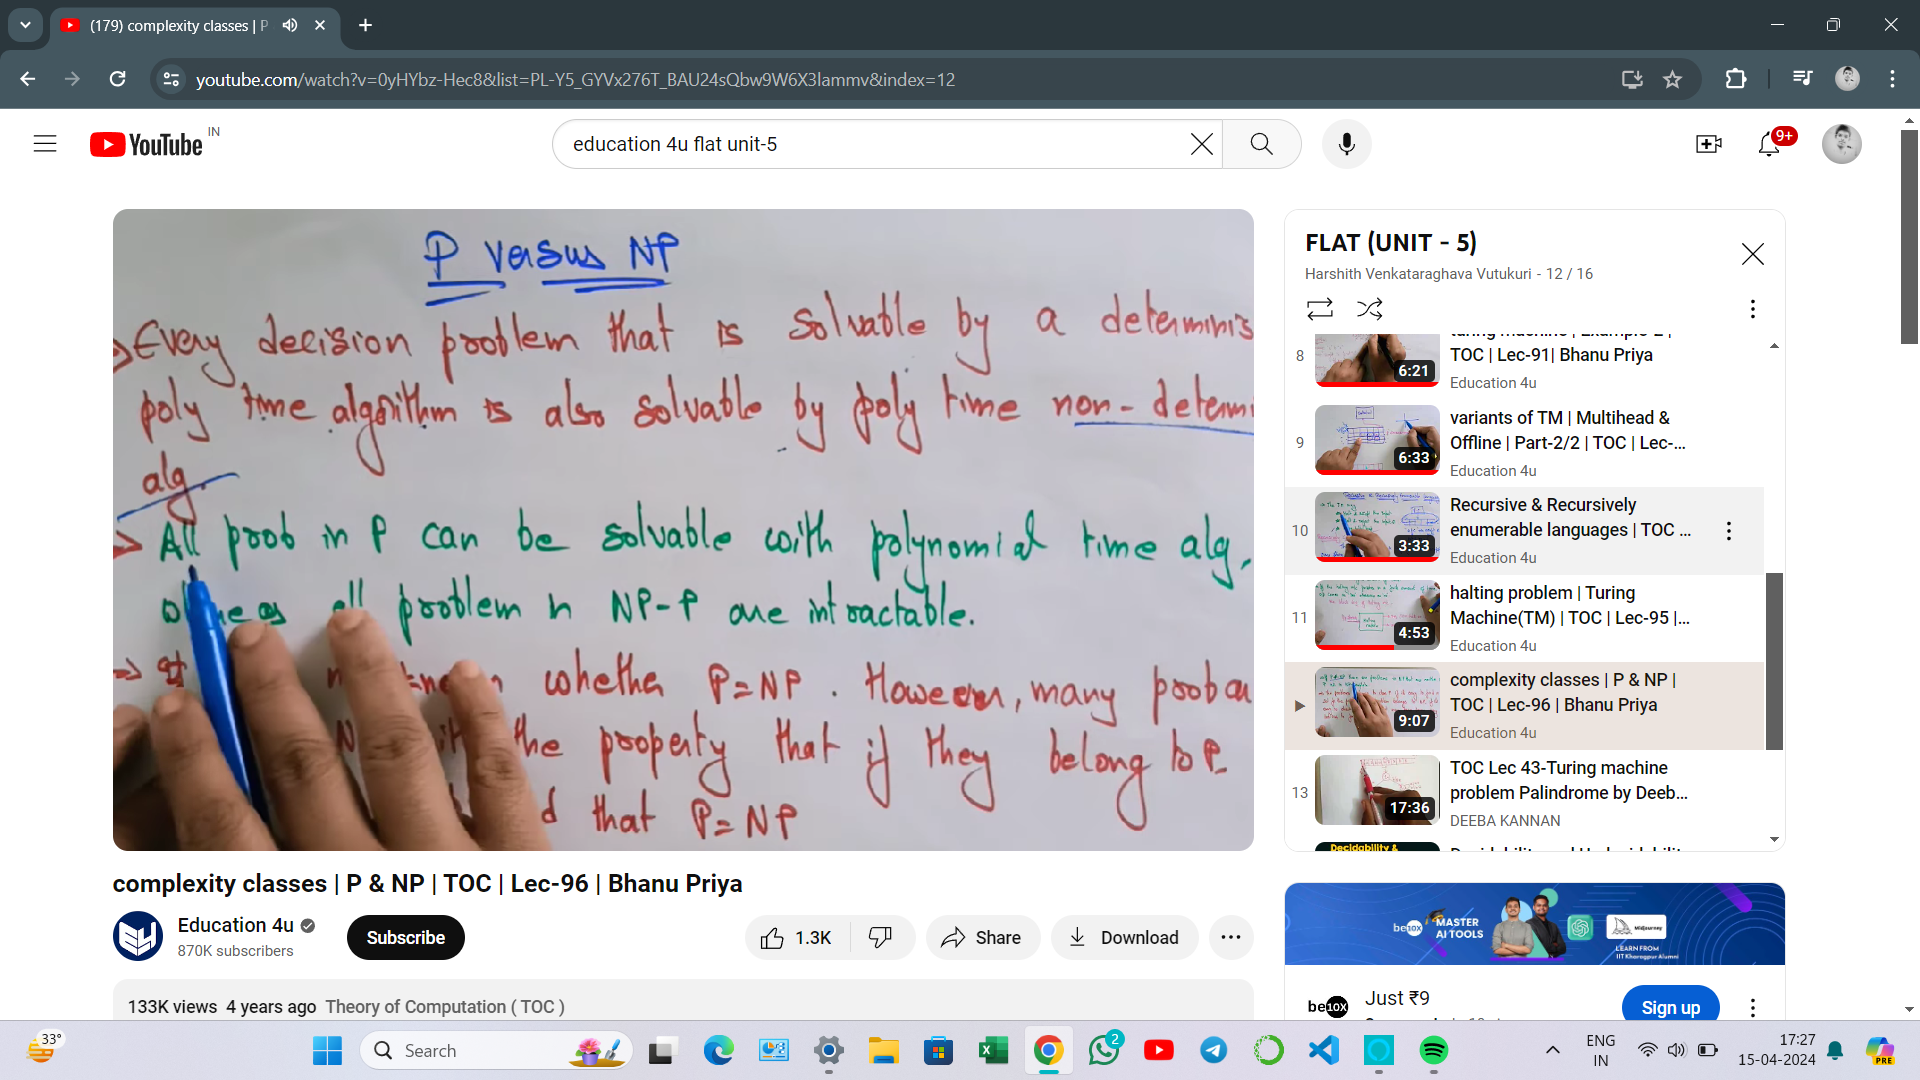 (179) complexity classes | P
youtube.com/watch?v=0yHYbz-Hec8&list=PL-Y5_GYVx276T_BAU24sQbw9W6X3lammv&index=12
YouTube IN
education 4u flat unit-5
9+
P versus NP
Every decision problem that is solvable by a determinis
poly time algorithm is also solvable by poly time non-determi
alg.
All prob in P can be solvable with polynomial time alg,
all problem in NP-P are intractable.
whether P=NP. However, many prob
the property that if they belong to P
that P=NP
complexity classes | P & NP | TOC | Lec-96 | Bhanu Priya
Education 4u
870K subscribers
Subscribe
1.3K
Share
Download
133K views 4 years ago Theory of Computation ( TOC )
FLAT (UNIT - 5)
Harshith Venkataraghava Vutukuri - 12 / 16
8
6:21
turing machine | Example-2 |
TOC | Lec-91| Bhanu Priya
Education 4u
9
6:33
variants of TM | Multihead &
Offline | Part-2/2 | TOC | Lec-...
Education 4u
10
3:33
Recursive & Recursively
enumerable languages | TOC ...
Education 4u
11
4:53
halting problem | Turing
Machine(TM) | TOC | Lec-95 |...
Education 4u
9:07
complexity classes | P & NP |
TOC | Lec-96 | Bhanu Priya
Education 4u
13
17:36
TOC Lec 43-Turing machine
problem Palindrome by Deeb...
DEEBA KANNAN
Decidability &
be10x
MASTER
AI TOOLS
Midjourney
LEARN FROM
IIT Kharagpur Alumni
be10x
Just ₹9
Sign up
33°
Search
2
ENG
IN
17:27
15-04-2024
PRE